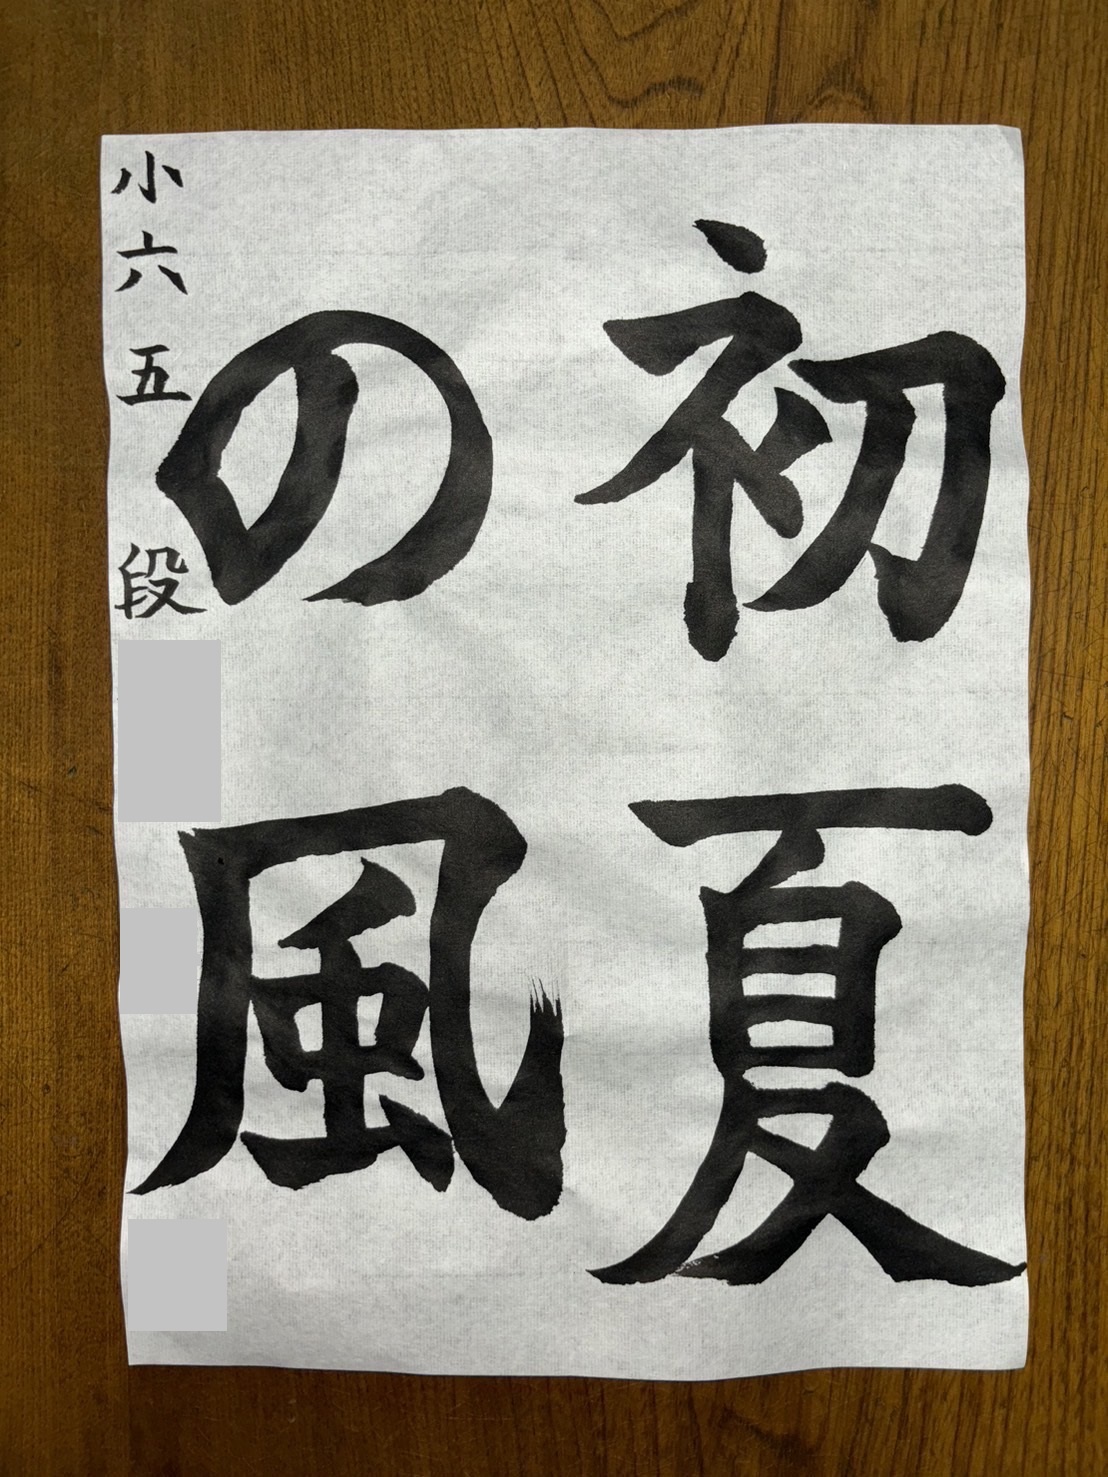 初夏
の風
小六五段